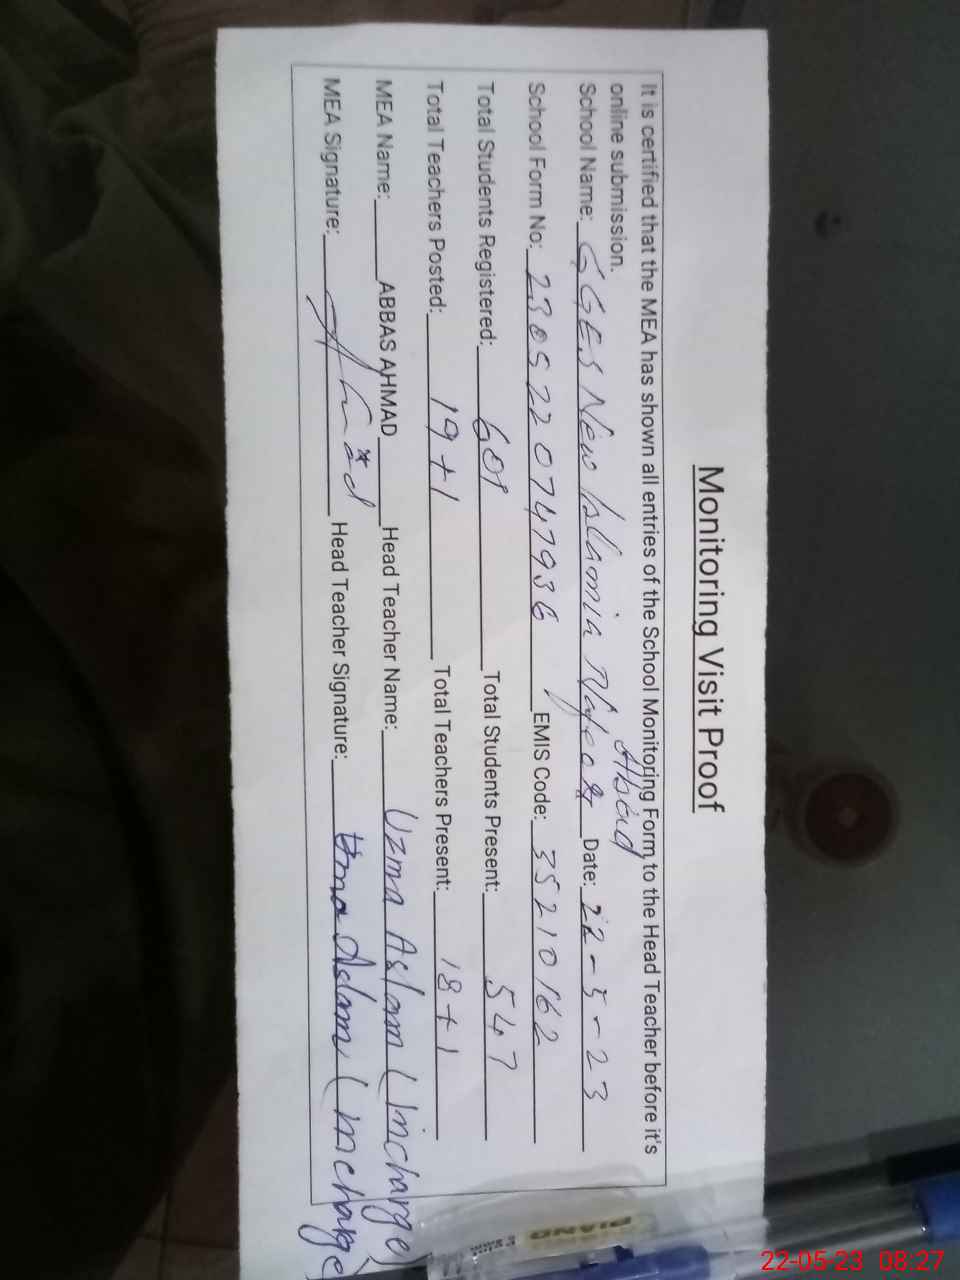 Monitoring Visit Proof
It is certified that the MEA has shown all entries of the School Monitoring Form to the Head Teacher before it's
online submission.
School Name: GGES New Islamia Date: 22-5-23
School Form No: 230522074 7936 EMIS Code: 35210162
Total Students Registered: 609 Total Students Present: 547
Total Teachers Posted: 19+1 Total Teachers Present: 18+1
MEA Name: ABBAS AHMAD Head Teacher Name: Uzma Aslam (Incharge)
MEA Signature: Head Teacher Signature: Uzma Aslam (Incharge)
PIANO
22-05-23 08:27